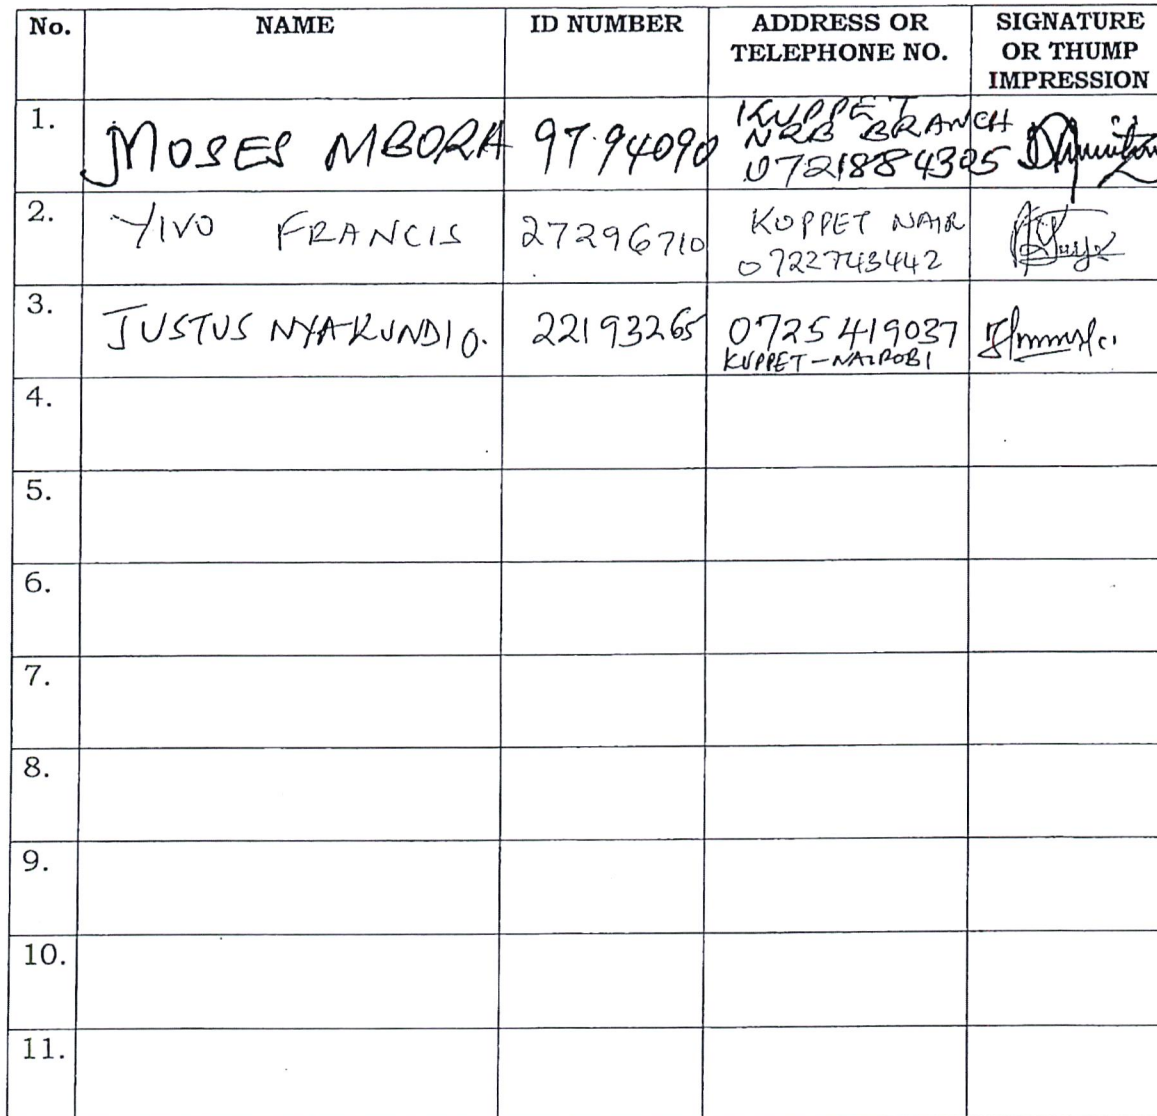 No. NAME ID NUMBER ADDRESS OR TELEPHONE NO. SIGNATURE OR THUMP IMPRESSION
1. MOSES MBORA 9794090 KUPPET NRB BRANCH 0721884305
2. YIVO FRANCIS 27296710 KUPPET NAIR 0722743442
3. JUSTUS NYAKUNDI O. 22193265 0725419037 KUPPET-NAIROBI
4.
5.
6.
7.
8.
9.
10.
11.